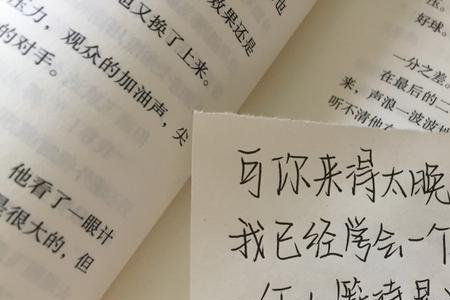 也
效果还是
也又换了上来。
压力，观众的加油声，尖
的对手。
他看了一眼计
是很大的，但
压。
好球。
一分之差。
在最后的二
来，声浪一波波
听不清他
可你来得太晚
我已经学会一个